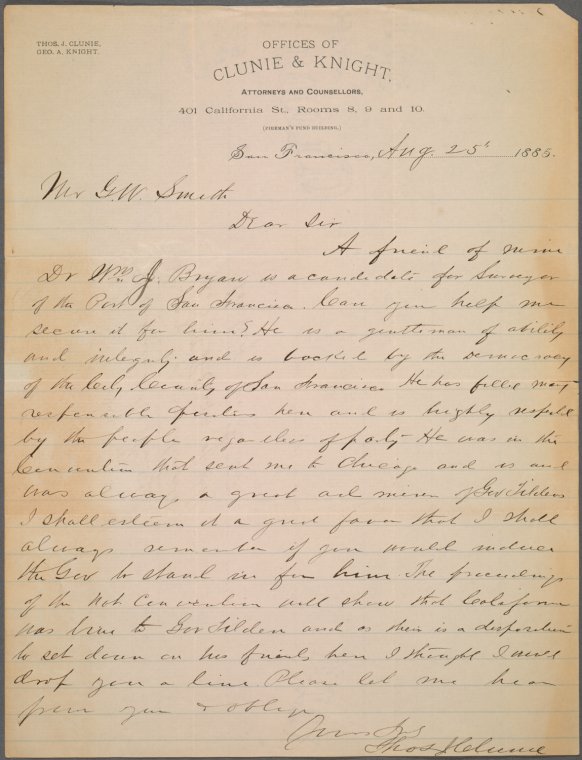 THOS. J. CLUNIE,
GEO. A. KNIGHT.
OFFICES OF
CLUNIE & KNIGHT,
ATTORNEYS AND COUNSELLORS,
401 California St., Rooms 8, 9 and 10.
(FIREMAN'S FUND BUILDING,)
San Francisco, Aug. 25" 1885.
Mr G. W. Smith
Dear Sir
A friend of mine
Dr Wm J. Bryan is a candidate for Surveyor
of the Port of San Francisco. Can you help me
secure it for him? He is a gentleman of ability
and integrity and is backed by the Democracy
of the City County of San Francisco He has filled many
responsible positions here and is highly respected
by the people regardless of party He was in the
Convention that sent me to Chicago and is and
was always a great admirer of Gov Tildens
I shall esteem it a great favor that I shall
always remember if you would induce
the Gov to stand in for him The proceedings
of the Nat Convention will show that California
was true to Gov Tilden and as there is a disposition
to set down on his friends here I thought I would
drop you a line Please let me hear
from you & oblige
Yours &c
Thos J Clunie